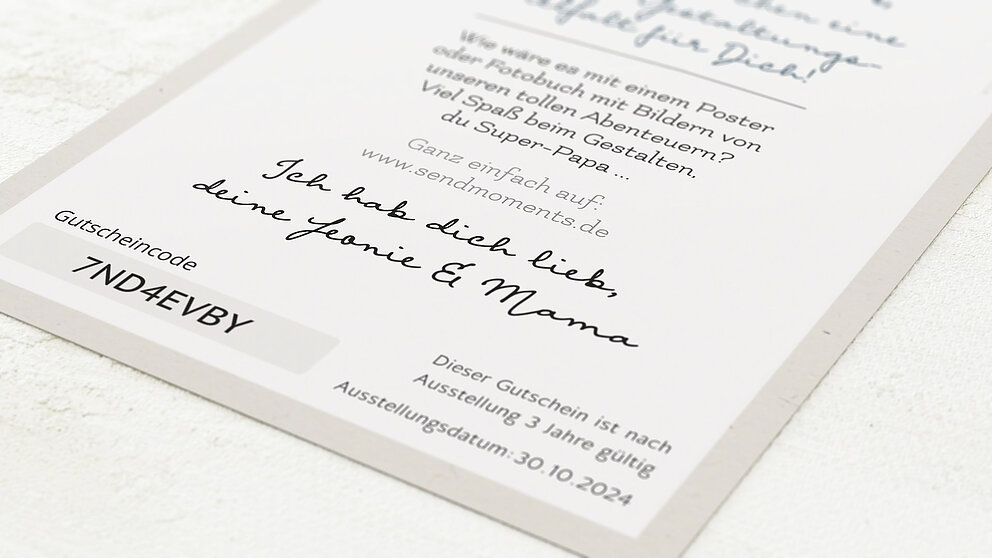 eine
Gestaltungs-
für Dich!
Wie wäre es mit einem Poster
oder Fotobuch mit Bildern von
unseren tollen Abenteuern?
Viel Spaß beim Gestalten,
du Super-Papa ...
Ganz einfach auf:
www.sendmoments.de
Ich hab dich lieb,
deine Leonie & Mama
Gutscheincode
7ND4EVBY
Dieser Gutschein ist nach
Ausstellung 3 Jahre gültig
Ausstellungsdatum: 30.10.2024